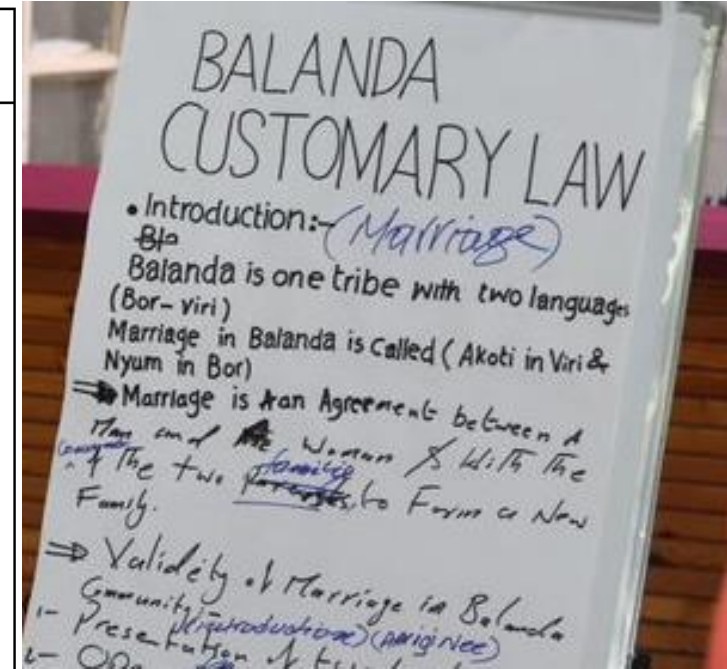 BALANDA
CUSTOMARY LAW
• Introduction:- (Marriage)
Balanda is one tribe with two languages
(Bor-Viri)
Marriage in Balanda is called (Akoti in Viri &
Nyum in Bor)
⇒ Marriage is an Agreement between A
Man and Woman & With The
of The two families to Form a New
Family.
⇒ Validity of Marriage in Balanda
Community
1- Presentation of
2-